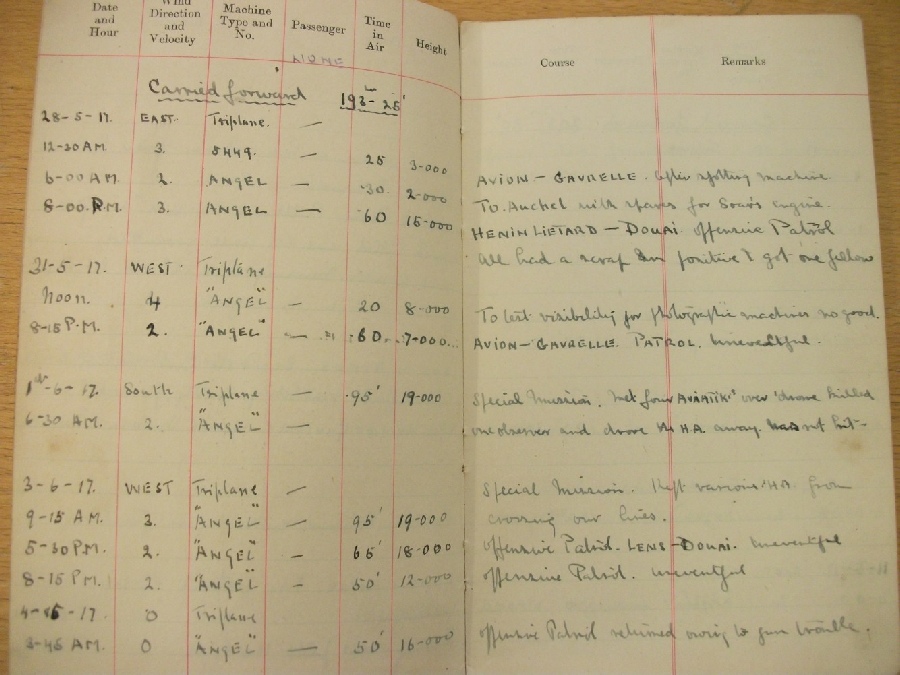 Date and Hour Wind Direction and Velocity Machine Type and No. Passenger Time in Air Height Course Remarks
Carried forward 193-25'
28-5-17. EAST. Triplane. —
12-30 AM. 3. 5449. — 25 3-000 AVION — GAVRELLE. After spotting machine.
6-00 AM. 2. ANGEL — 30. 2-000 To Auchel with spares for engine.
8-00. P.M. 3. ANGEL — 60 15-000 HENIN LIETARD — DOUAI offensive Patrol
All had a scrap positive I got one fellow
31-5-17. WEST Triplane
Noon. 4 "ANGEL" — 20 8-000 To test visibility for photographic machines no good.
8-15 P.M. 2. "ANGEL" — 60. 7-000 AVION — GAVRELLE. PATROL. Uneventful.
1st-6-17 South Triplane — 95' 19-000 Special Mission. Met four AVIATIKS over drove killed
6-30 AM. 2. "ANGEL" — one observer and drove H.A. away. not hit-
3-6-17. WEST Triplane — Special Mission. Kept various HA from
9-15 AM. 3. "ANGEL" — 95' 19-000 crossing our lines.
5-30 PM. 2. "ANGEL" — 65' 18-000 Offensive Patrol. LENS — DOUAI. Uneventful
8-15 PM. 2. "ANGEL" — 50' 12-000 Offensive Patrol. Uneventful
17 0 Triplane
3-45 AM. 0 "ANGEL" — 50' 16-000 Offensive Patrol returned owing to gun trouble.